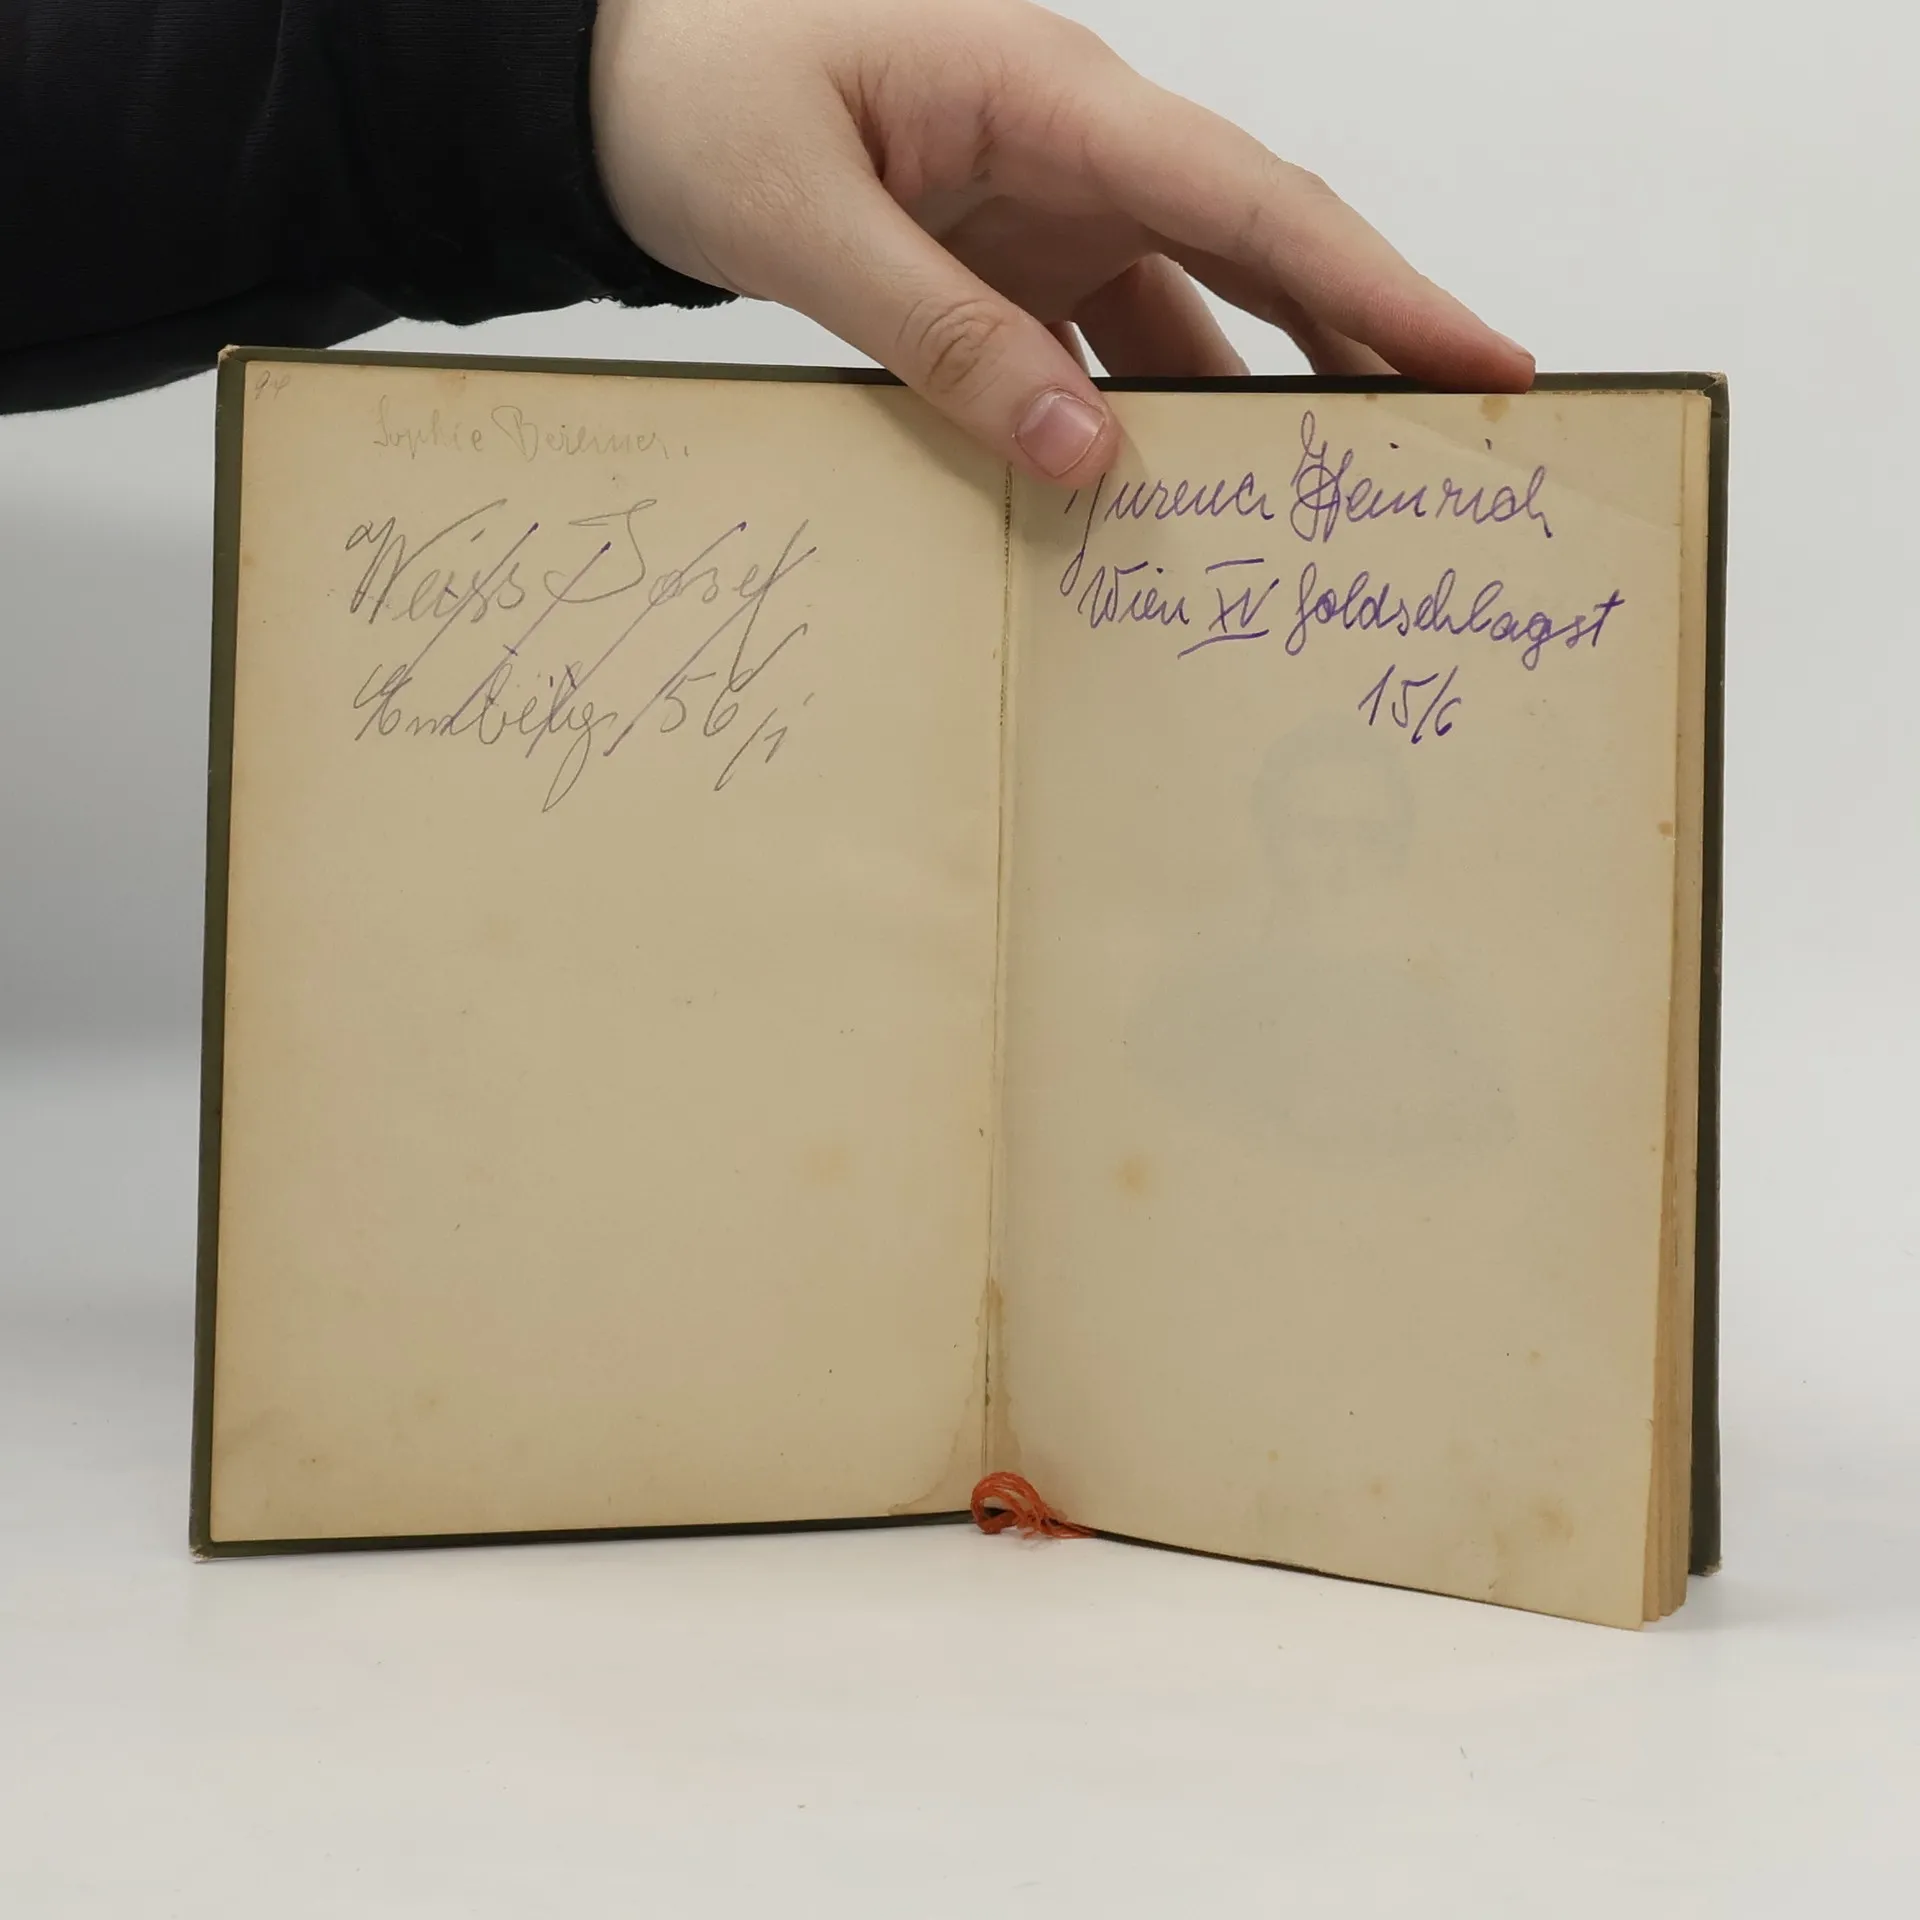 94
Sophie Berliner.
Weiss Josef
56/1
Jurena Heinrich
Wien XV Goldschlagst
15/6